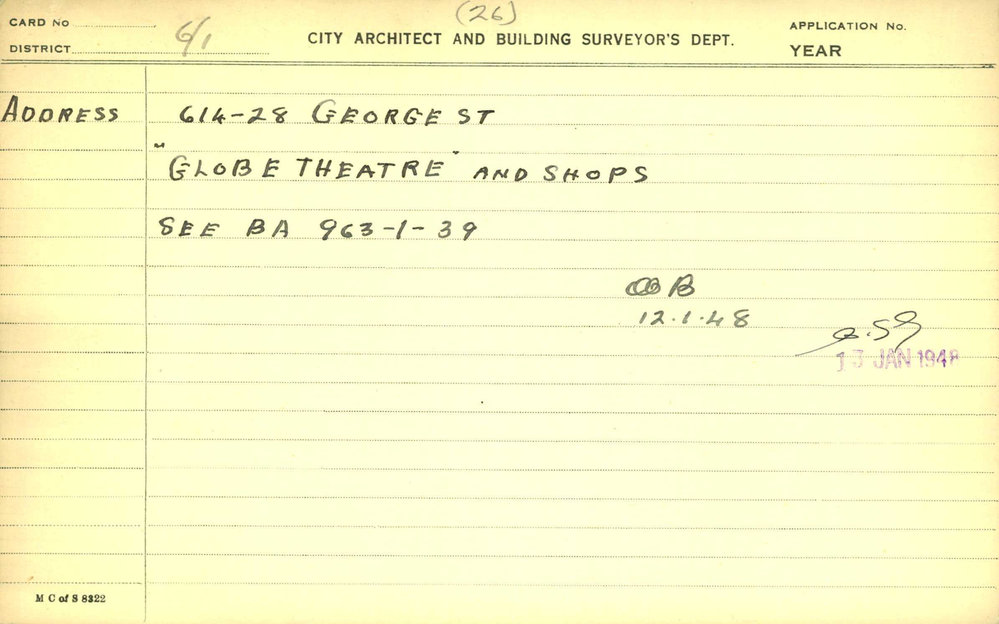 (26)
CARD No
6/1
DISTRICT
CITY ARCHITECT AND BUILDING SURVEYOR'S DEPT.
APPLICATION No.
YEAR
ADDRESS 614-28 GEORGE ST
"GLOBE THEATRE" AND SHOPS
SEE BA 963-1-39
12.1.48
13 JAN 1948
M C of S 8322